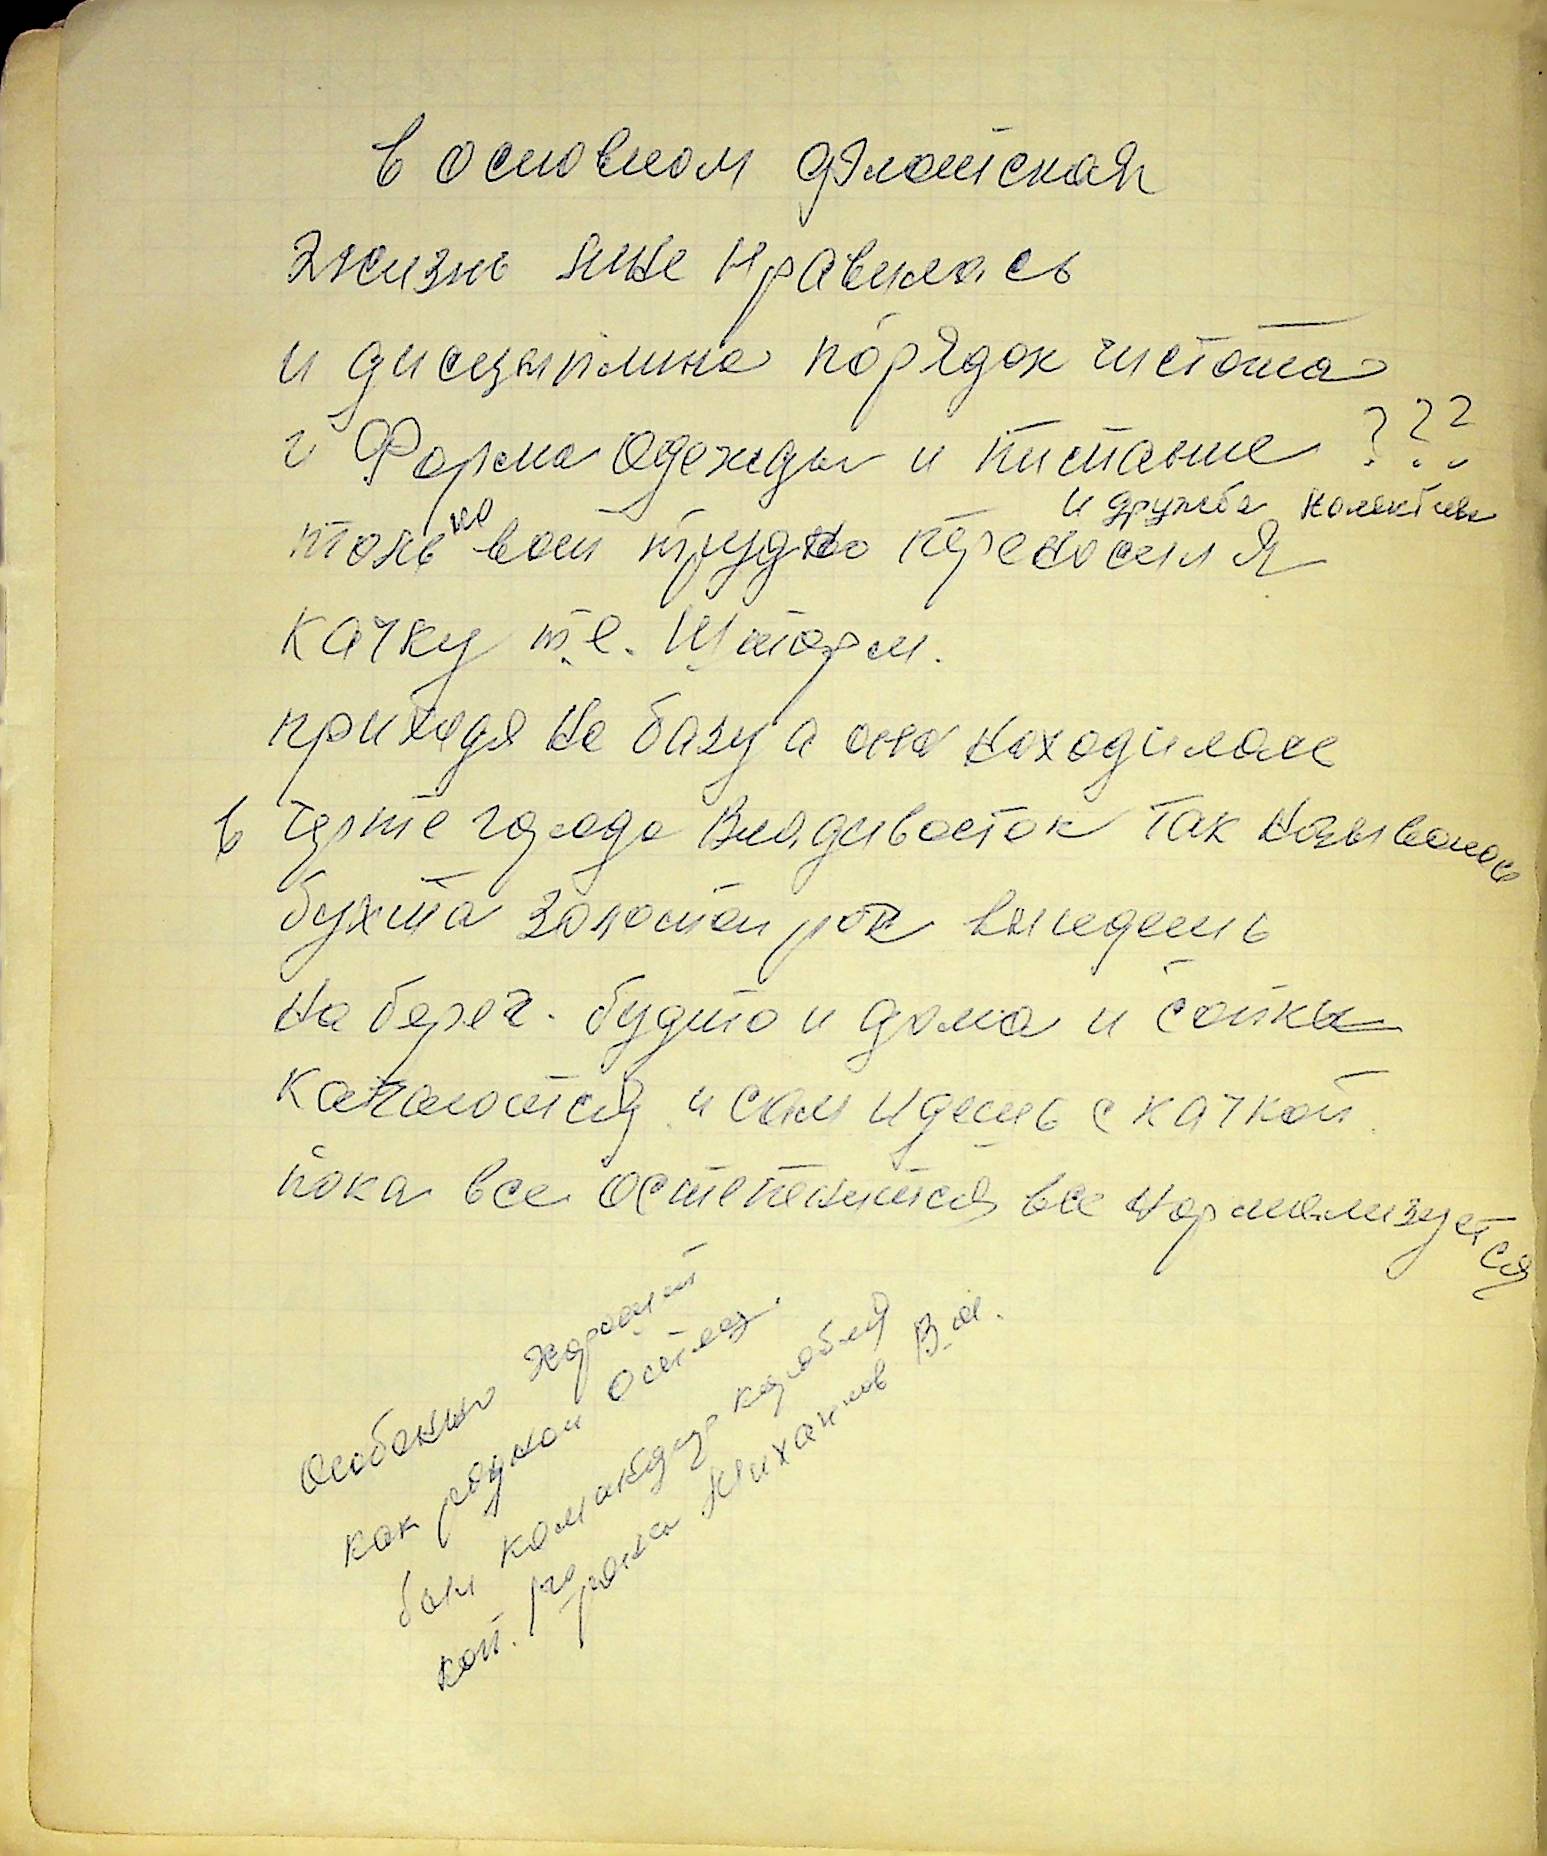 в основном флотская
жизнь мне нравилась
и дисцыплина порядок чистота
и Форма одежды и питание ???
и дружба колектива
только вот трудно переносил я
качку т.е. Шторм.
приходя на базу а она находилась
в черте города Владивосток так называлась
бухта золотой рог выйдешь
на берег. будто и дома и сопки
качаются и сам идешь с качкой.
пока все остепенится все нормализуется
Особенно хороший
как родной отец.
был командир корабля
кап. го
ранга Михайлов В.М.